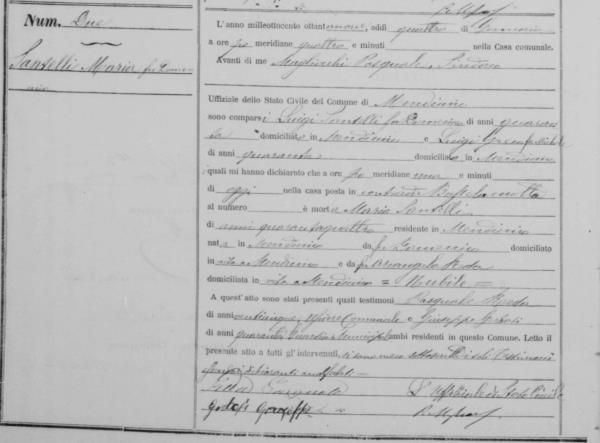 Num. Due
Santelli Maria fu Domenico
L'anno milleottocento ottantanove, addì quattro di Gennaio
a ore po meridiane quattro e minuti nella Casa comunale.
Avanti di me Pasquale Sindaco
Uffiziale dello Stato Civile del Comune di Mendicino
sono comparsi Luigi Santelli fu Domenico di anni quaran
ta domiciliato in Mendicino e Luigi
di anni quaranta domiciliato in Mendicino
quali mi hanno dichiarato che a ore po meridiane una e minuti
di oggi nella casa posta in contrada
al numero è morta Maria Santelli
di anni quarantaquattro residente in Mendicino
nata in Mendicino da fu Domenico domiciliato
in vita a Mendicino e da fu Arcangela Reda
domiciliata in vita a Mendicino = Nubile =
A quest'atto sono stati presenti quali testimoni Pasquale Reda
di anni venticinque, Usciere Comunale e Giuseppe
di anni quaranta Guardia Municipale ambi residenti in questo Comune. Letto il
presente atto a tutti gl'intervenuti,
Reda Pasquale L'uffiziale di Stato Civile
Giuseppe